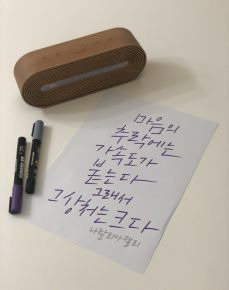 마음의
추락에는
가속도가
붙는다
그래서
그 상처는 크다
나랄리아캘리